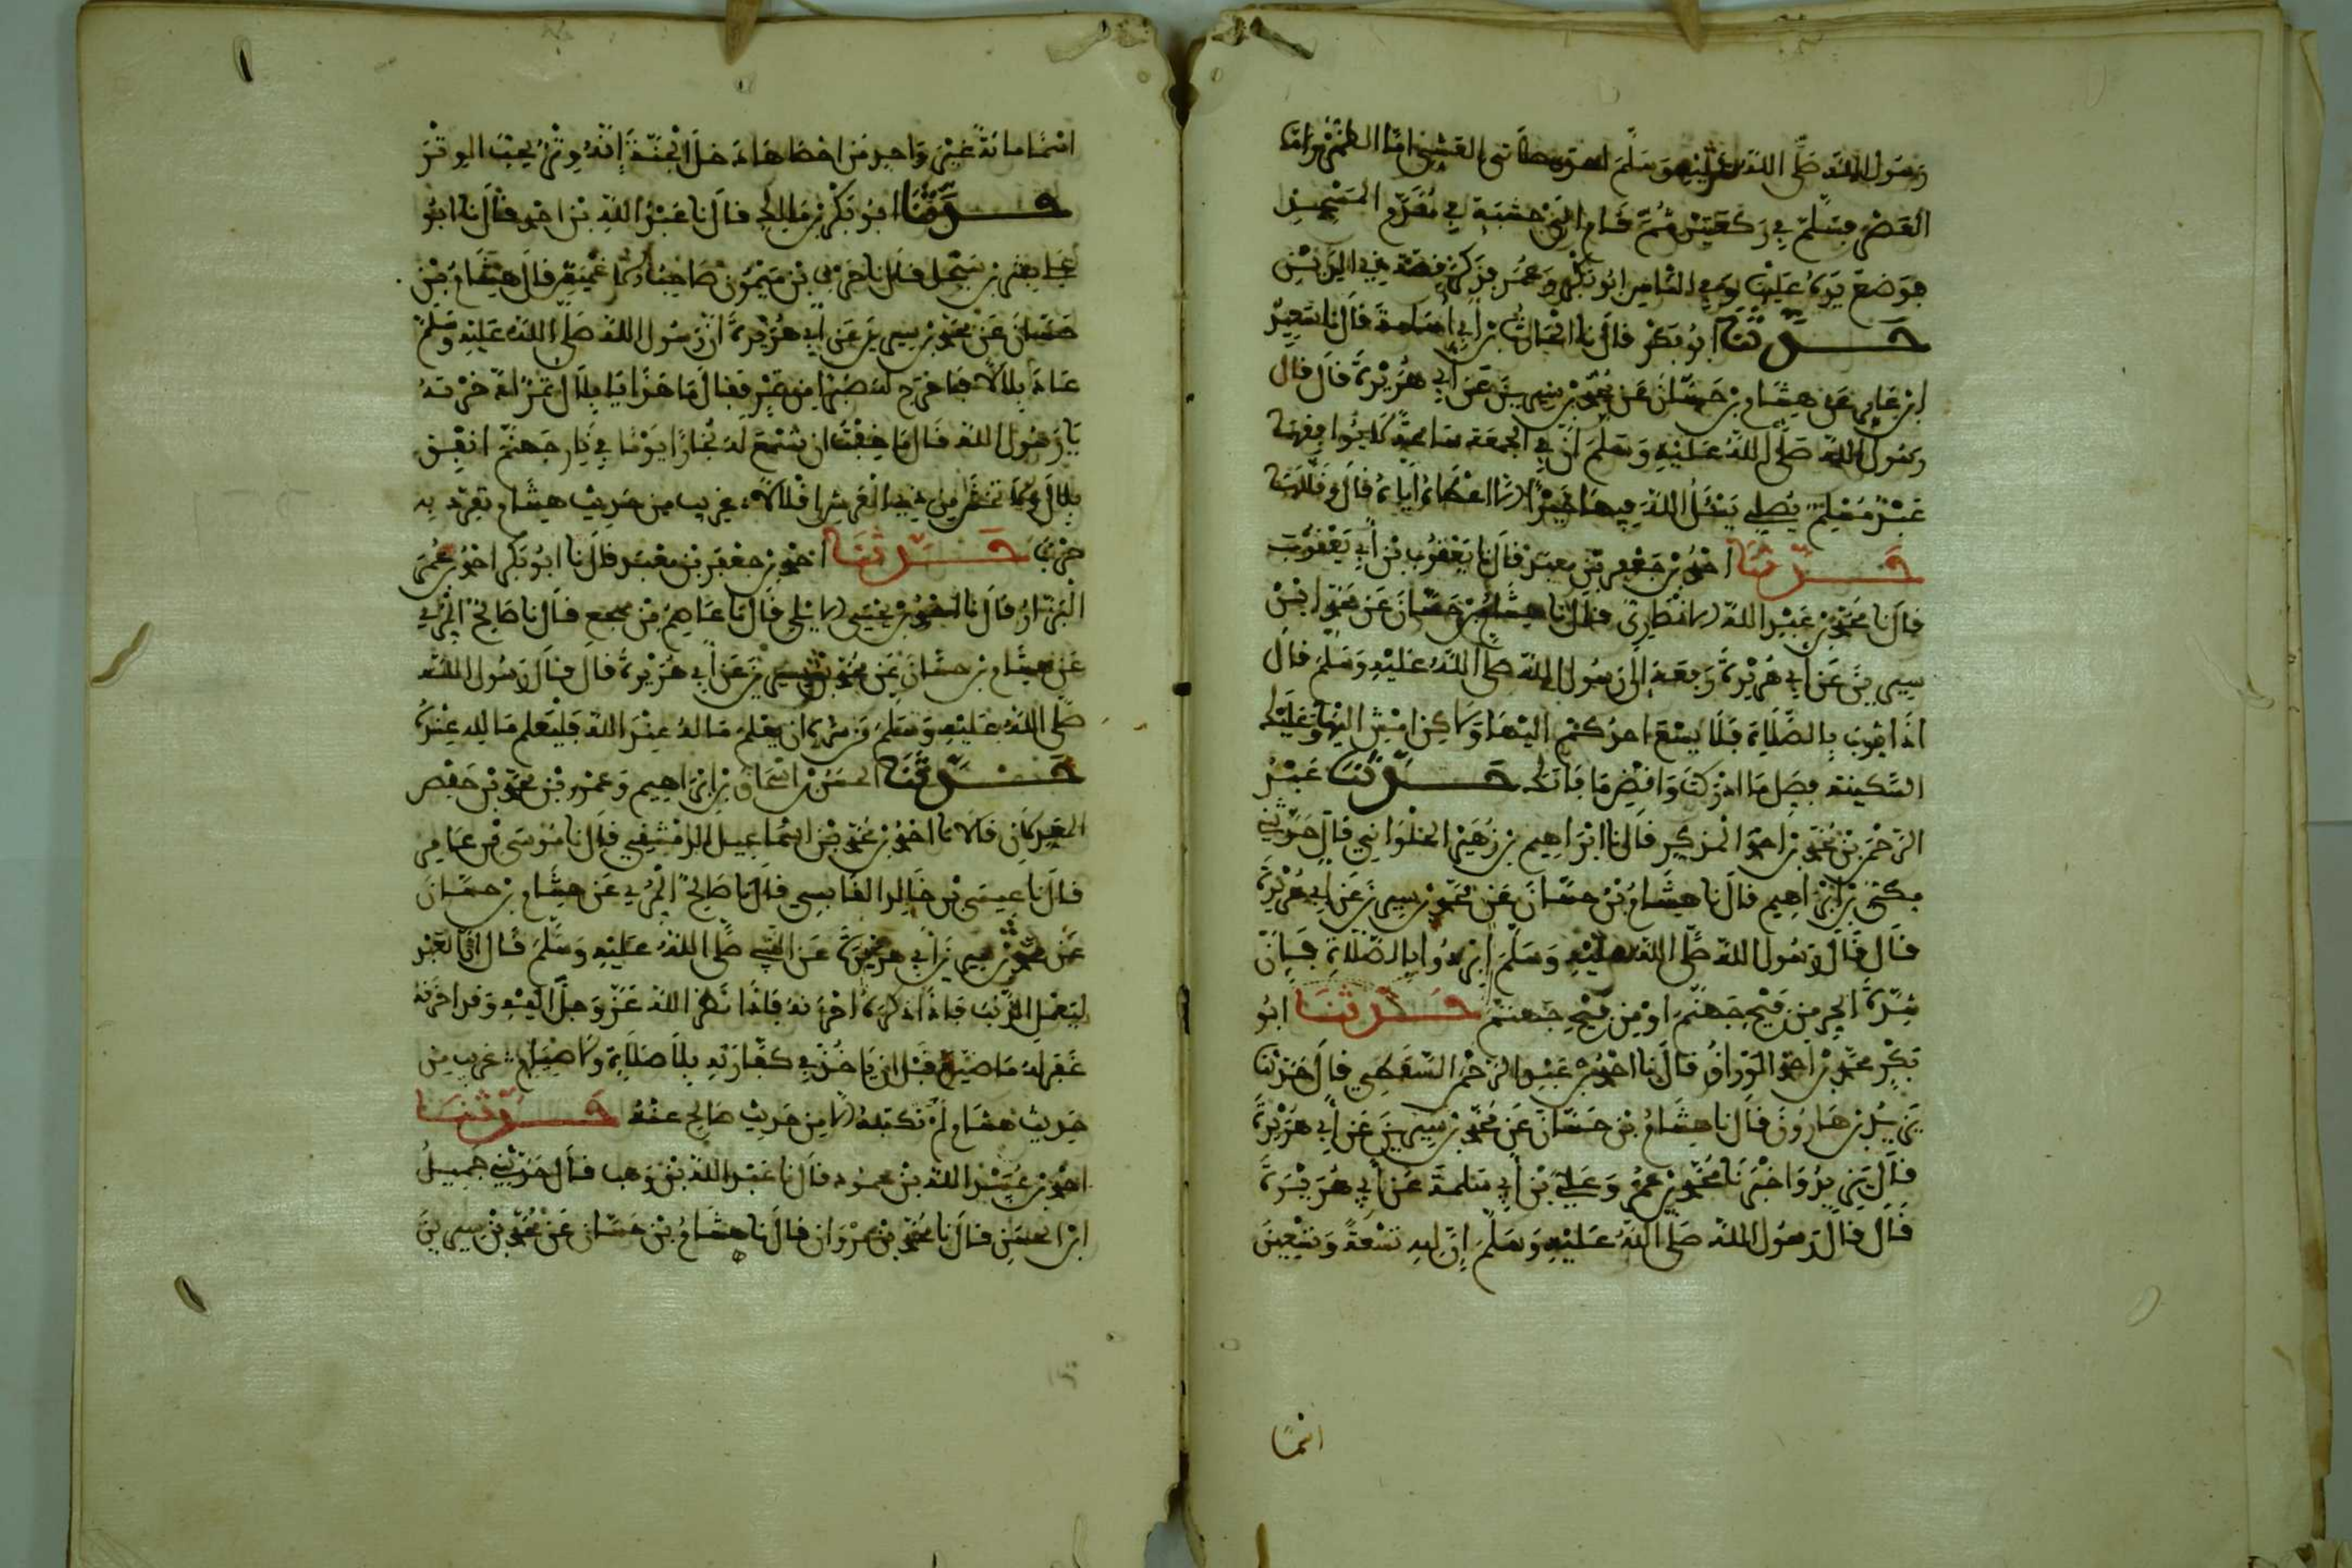 رسول الله صلى الله عليه وسلم إحدى صلاتي العشي إما الظهر وإما
العصر فسلم في ركعتين ثم قام إلى خشبة في مقدم المسجد
فوضع يده عليها وفي الناس ابو بكر وعمر
حدثنا ابو بكر قال نا الحارث بن أبي أسامة قال نا سعيد
ابن عامر عن هشام بن حسان عن محمد بن سيرين عن أبي هريرة قال قال
رسول الله صلى الله عليه وسلم ان في الجمعة ساعة لا يوافقها
عبد مسلم يصلي يسئل الله فيها خيرا الا اعطاه اياه قال وقللها
حدثنا احمد بن جعفر بن معبد قال نا يعقوب بن أبي يعقوب
قال نا محمد بن عبد الله الانصاري قال نا هشام بن حسان عن محمد ابن
سيرين عن أبي هريرة رفعه الى رسول الله صلى الله عليه وسلم قال
اذا ثوب بالصلاة فلا يسع احدكم اليها ولاكن امش اليها وعليك
السكينة فصل ما ادركت واقض ما فاتك حدثنا عبد
الرحمن بن محمد بن احمد المزكي قال نا ابراهيم بن زهير الحلواني قال حدثني
مكي بن ابراهيم قال نا هشام بن حسان عن محمد بن سيرين عن ابي هريرة
قال قال رسول الله صلى الله عليه وسلم ابردوا بالصلاة فان
شدة الحر من فيح جهنم او من فيح جهنم حدثنا ابو
بكر محمد بن احمد الوراق قال نا احمد بن عبد الرحمن السقطي قال حدثنا
يزيد بن هارون قال نا هشام بن حسان عن محمد بن سيرين عن أبي هريرة
قال يزيد واخبرنا محمد بن عمرو عن أبي سلمة عن أبي هريرة
قال قال رسول الله صلى الله عليه وسلم إن لله تسعة وتسعين
اسما
اسما مائة غير واحد من احصاها دخل الجنة إنه وتر يحب الوتر
حدثنا ابو بكر بن مالك قال نا عبد الله بن احمد قال نا ابو
صاحب قال هشام بن
حسان عن محمد بن سيرين عن أبي هريرة ان رسول الله صلى الله عليه وسلم
عاد بلالا فاخرج له صبرا من تمر فقال ما هذا يا بلال تمر ادخرته
يا رسول الله قال اما خفت ان تسمع له بخارا يوما في نار جهنم انفق
بلال ولا تخش من ذي العرش اقلالا غريب من حديث هشام تفرد به
حرب حدثنا احمد بن جعفر بن معبد قال نا ابو بكر احمد بن عمرو
البزار قال نا احمد بن يحيى قال نا عاصم بن مجمع قال نا صالح المري
عن هشام بن حسان عن محمد بن سيرين عن أبي هريرة قال قال رسول الله
صلى الله عليه وسلم من سره ان يعلم ما له عند الله فليعلم ما لله عنده
حدثنا الحسن بن اسحاق بن ابراهيم وعمر بن محمد بن جعفر
قالا نا احمد بن محمد بن اسماعيل الدمشقي قال نا موسى بن عامر
قال نا عيسى بن خالد قال نا صالح المري عن هشام بن حسان
عن محمد بن سيرين أبي هريرة عن النبي صلى الله عليه وسلم قال ان العبد
ليعمل الذنب فاذا اذكره احزنه فاذا نظر الله عز وجل اليه وقد احزنه
غفر له ما صنع قبل ان ياخذ في كفارته بلا صلاة ولا صيام غريب من
حديث هشام لم نكتبه الا من حديث صالح عنه حدثنا
احمد بن عبيد الله بن محمود قال نا عبد الله بن وهب قال حدثني جميل
ابن الحسن قال نا محمد بن مروان قال نا هشام بن حسان عن محمد بن سيرين